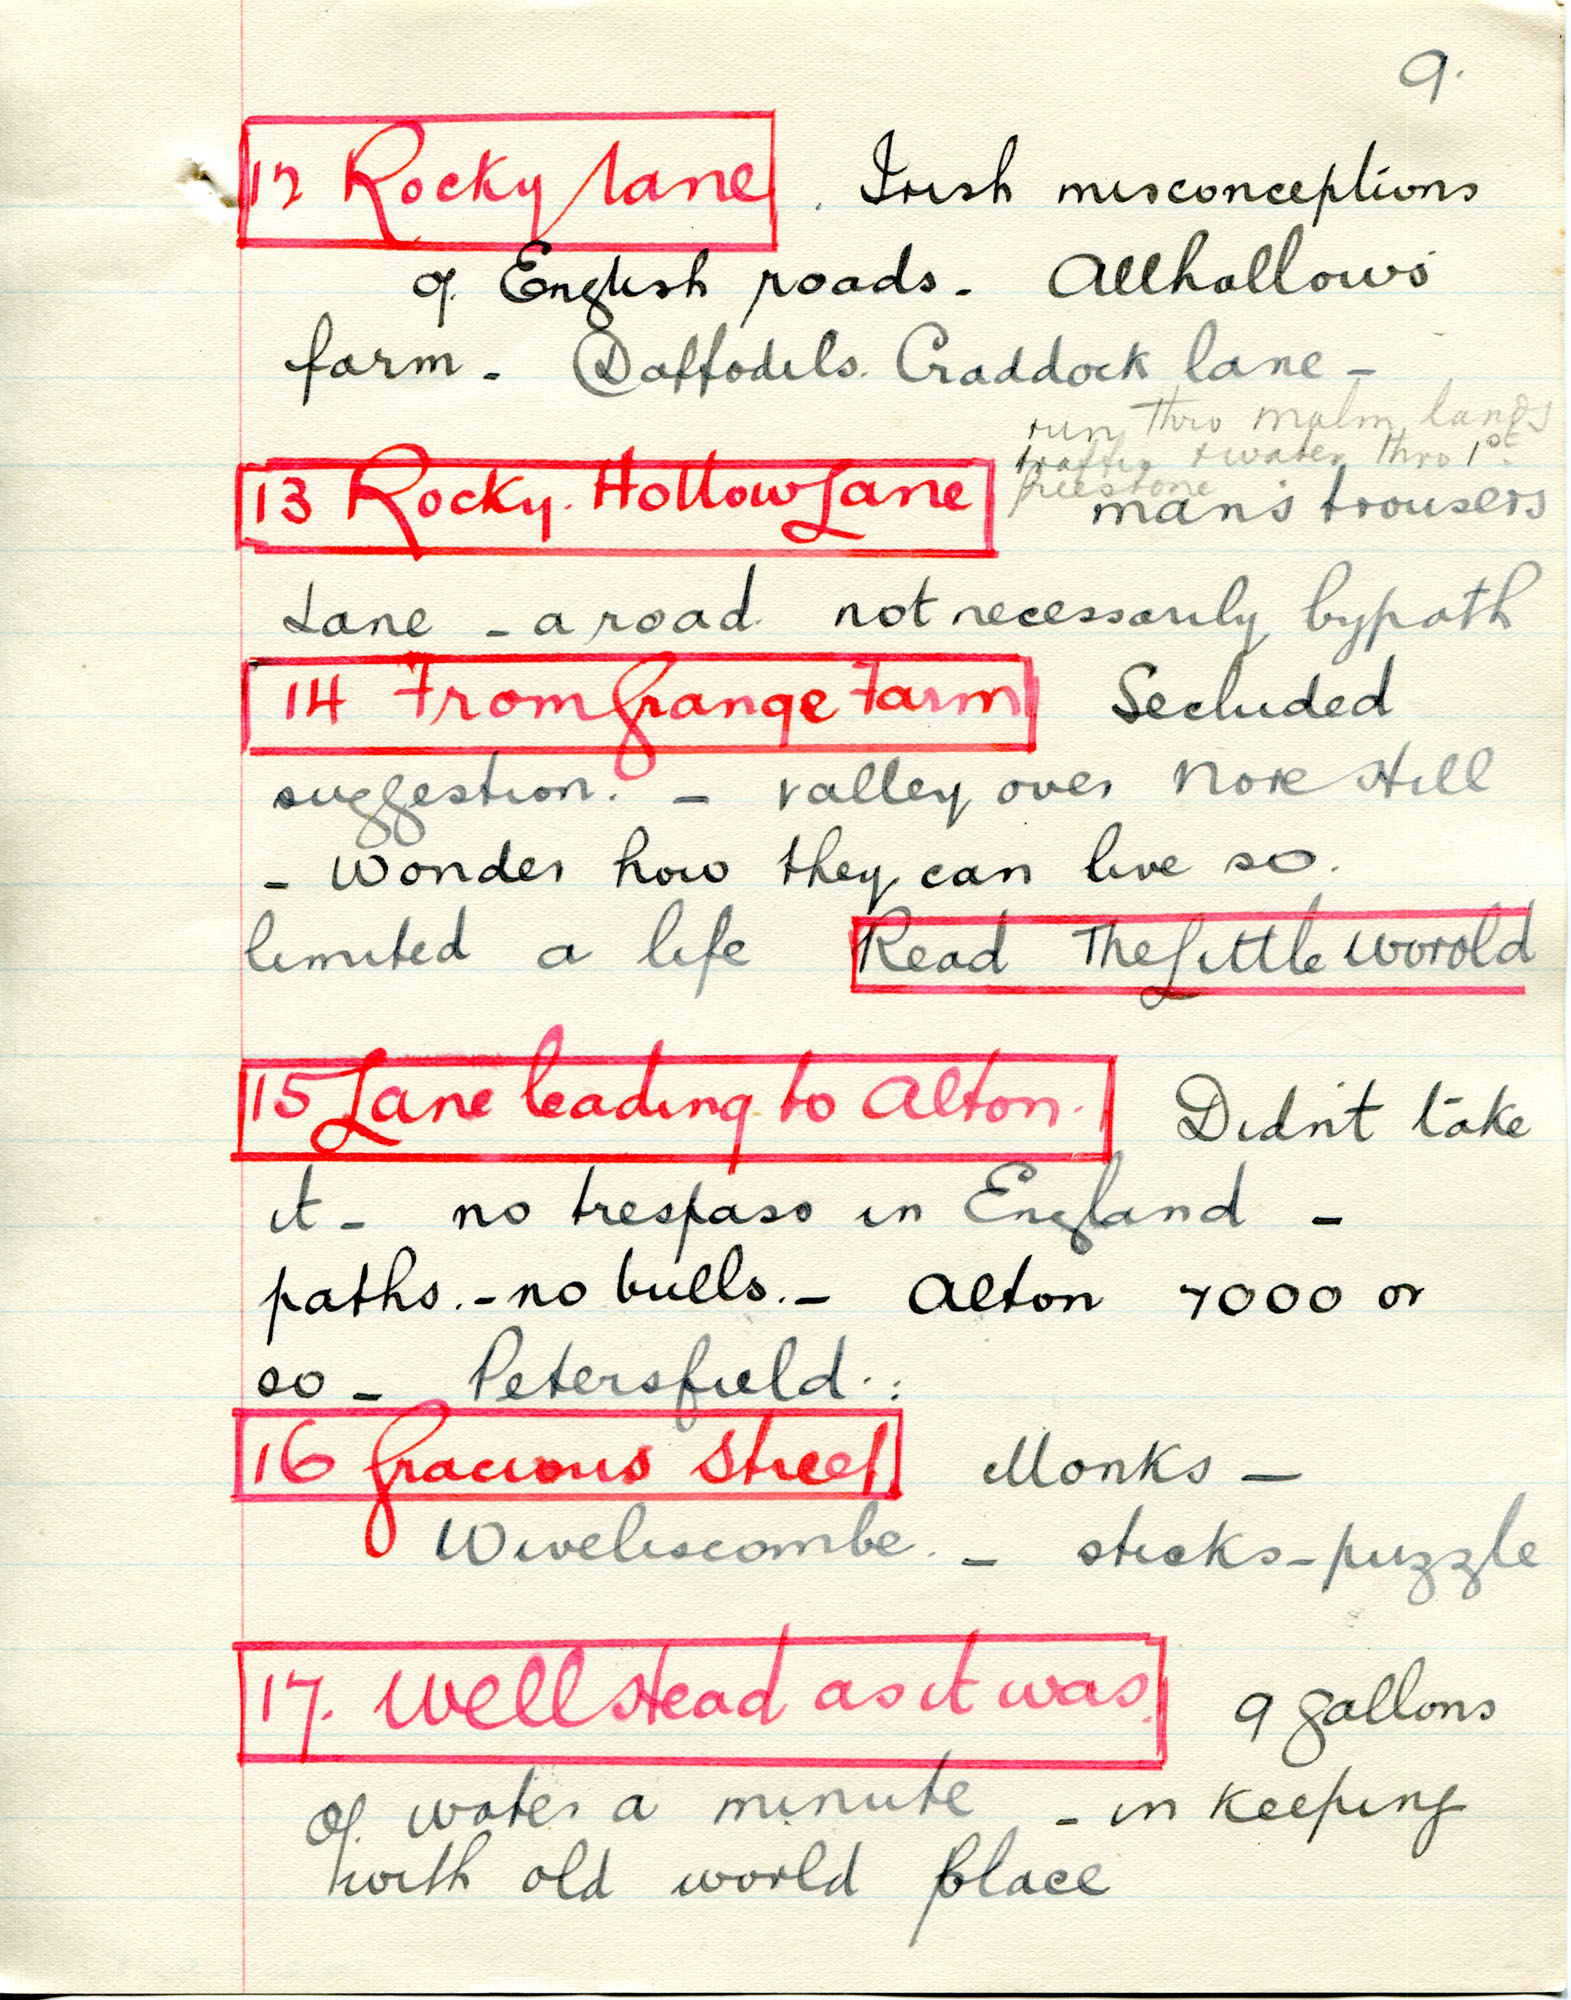 9.
12 Rocky lane . Irish misconceptions
of English roads - Allhallows
farm - Daffodils. Craddock lane -
run thro malm lands
traffic & water thro 1st
freestone
13 Rocky Hollow Lane man's trousers
Lane - a road not necessarily bypath
14 From Grange Farm Secluded
suggestion. - valley over Nore Hill
- Wonder how they can live so.
limited a life Read The Little Worold
15 Lane leading to Alton. Didn't take
it - no trespass in England -
paths. - no bulls. - Alton 7000 or
so - Petersfield . :
16 Gracious Street Monks -
Wiveliscombe. - sticks - puzzle
17. Well Head as it was. 9 gallons
of water a minute - in keeping
with old world place